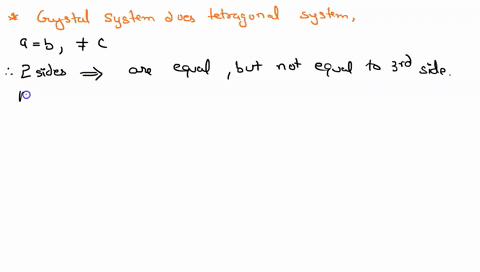 * Crystal system does tetragonal system,
a = b, ≠ c
∴ 2 sides ⟹ are equal, but not equal to 3rd side.